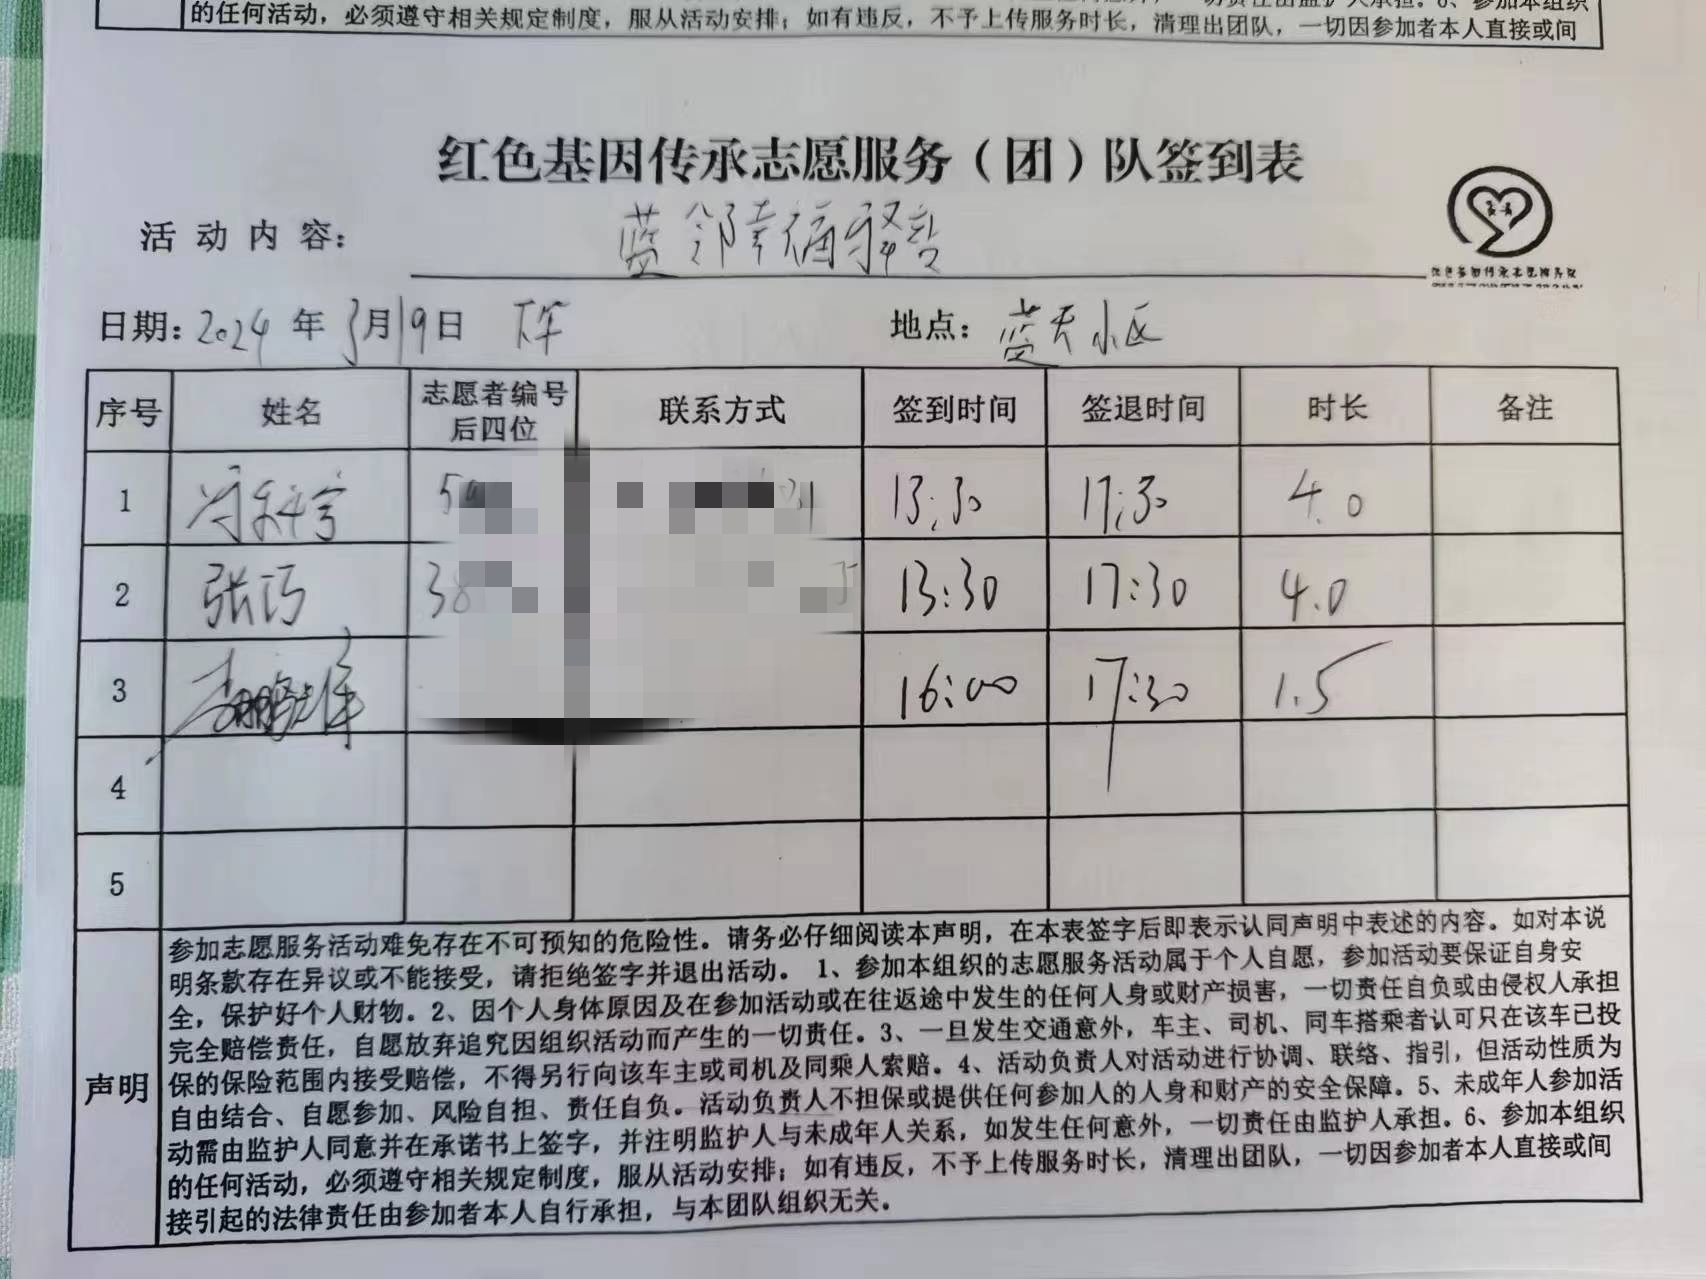 的任何活动，必须遵守相关规定制度，服从活动安排；如有违反，不予上传服务时长，清理出团队，一切因参加者本人直接或间
红色基因传承志愿服务（团）队签到表
活动内容： 蓝邻幸福驿站
日期：2024年3月19日 下午 地点：蓝天小区
序号 姓名 志愿者编号后四位 联系方式 签到时间 签退时间 时长 备注
1 13:30 17:30 4.0
2 张巧 38 13:30 17:30 4.0
3 16:00 17:30 1.5
4
5
声明
参加志愿服务活动难免存在不可预知的危险性。请务必仔细阅读本声明，在本表签字后即表示认同声明中表述的内容。如对本说
明条款存在异议或不能接受，请拒绝签字并退出活动。1、参加本组织的志愿服务活动属于个人自愿，参加活动要保证自身安
全，保护好个人财物。2、因个人身体原因及在参加活动或在往返途中发生的任何人身或财产损害，一切责任自负或由侵权人承担
完全赔偿责任，自愿放弃追究因组织活动而产生的一切责任。3、一旦发生交通意外，车主、司机、同车搭乘者认可只在该车已投
保的保险范围内接受赔偿，不得另行向该车主或司机及同乘人索赔。4、活动负责人对活动进行协调、联络、指引，但活动性质为
自由结合、自愿参加、风险自担、责任自负。活动负责人不担保或提供任何参加人的人身和财产的安全保障。5、未成年人参加活
动需由监护人同意并在承诺书上签字，并注明监护人与未成年人关系，如发生任何意外，一切责任由监护人承担。6、参加本组织
的任何活动，必须遵守相关规定制度，服从活动安排；如有违反，不予上传服务时长，清理出团队，一切因参加者本人直接或间
接引起的法律责任由参加者本人自行承担，与本团队组织无关。